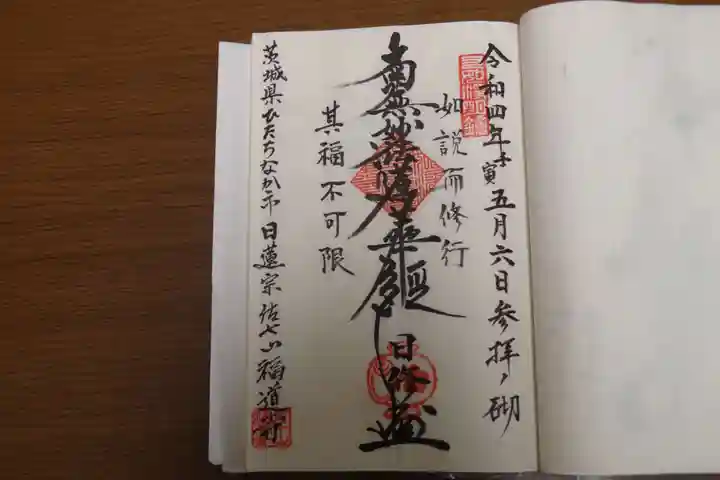 令和四年壬寅五月六日参拝ノ砌
如説而修行
南無妙法蓮華経
日修
其福不可限
茨城県ひたちなか市日蓮宗 福道